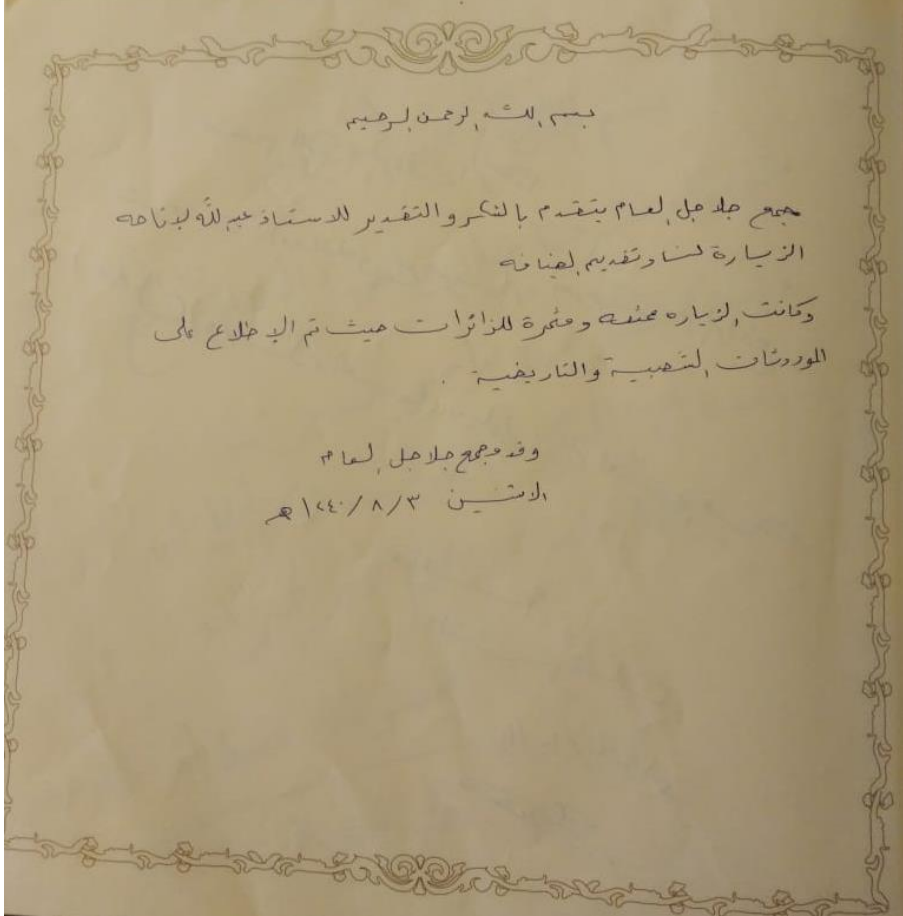 بسم الله الرحمن الرحيم
مجمع جلاجل العام يتقدم بالشكر والتقدير للاستاذ عبدالله لإتاحه
الزيارة لنا وتقديم الضيافه
وكانت الزياره ممتعه ومثمرة للزائرات حيث تم الإطلاع على
الموروثات الشعبية والتاريخية .
وفد مجمع جلاجل العام
الاثنين ٣/٨/١٤٤٠ه